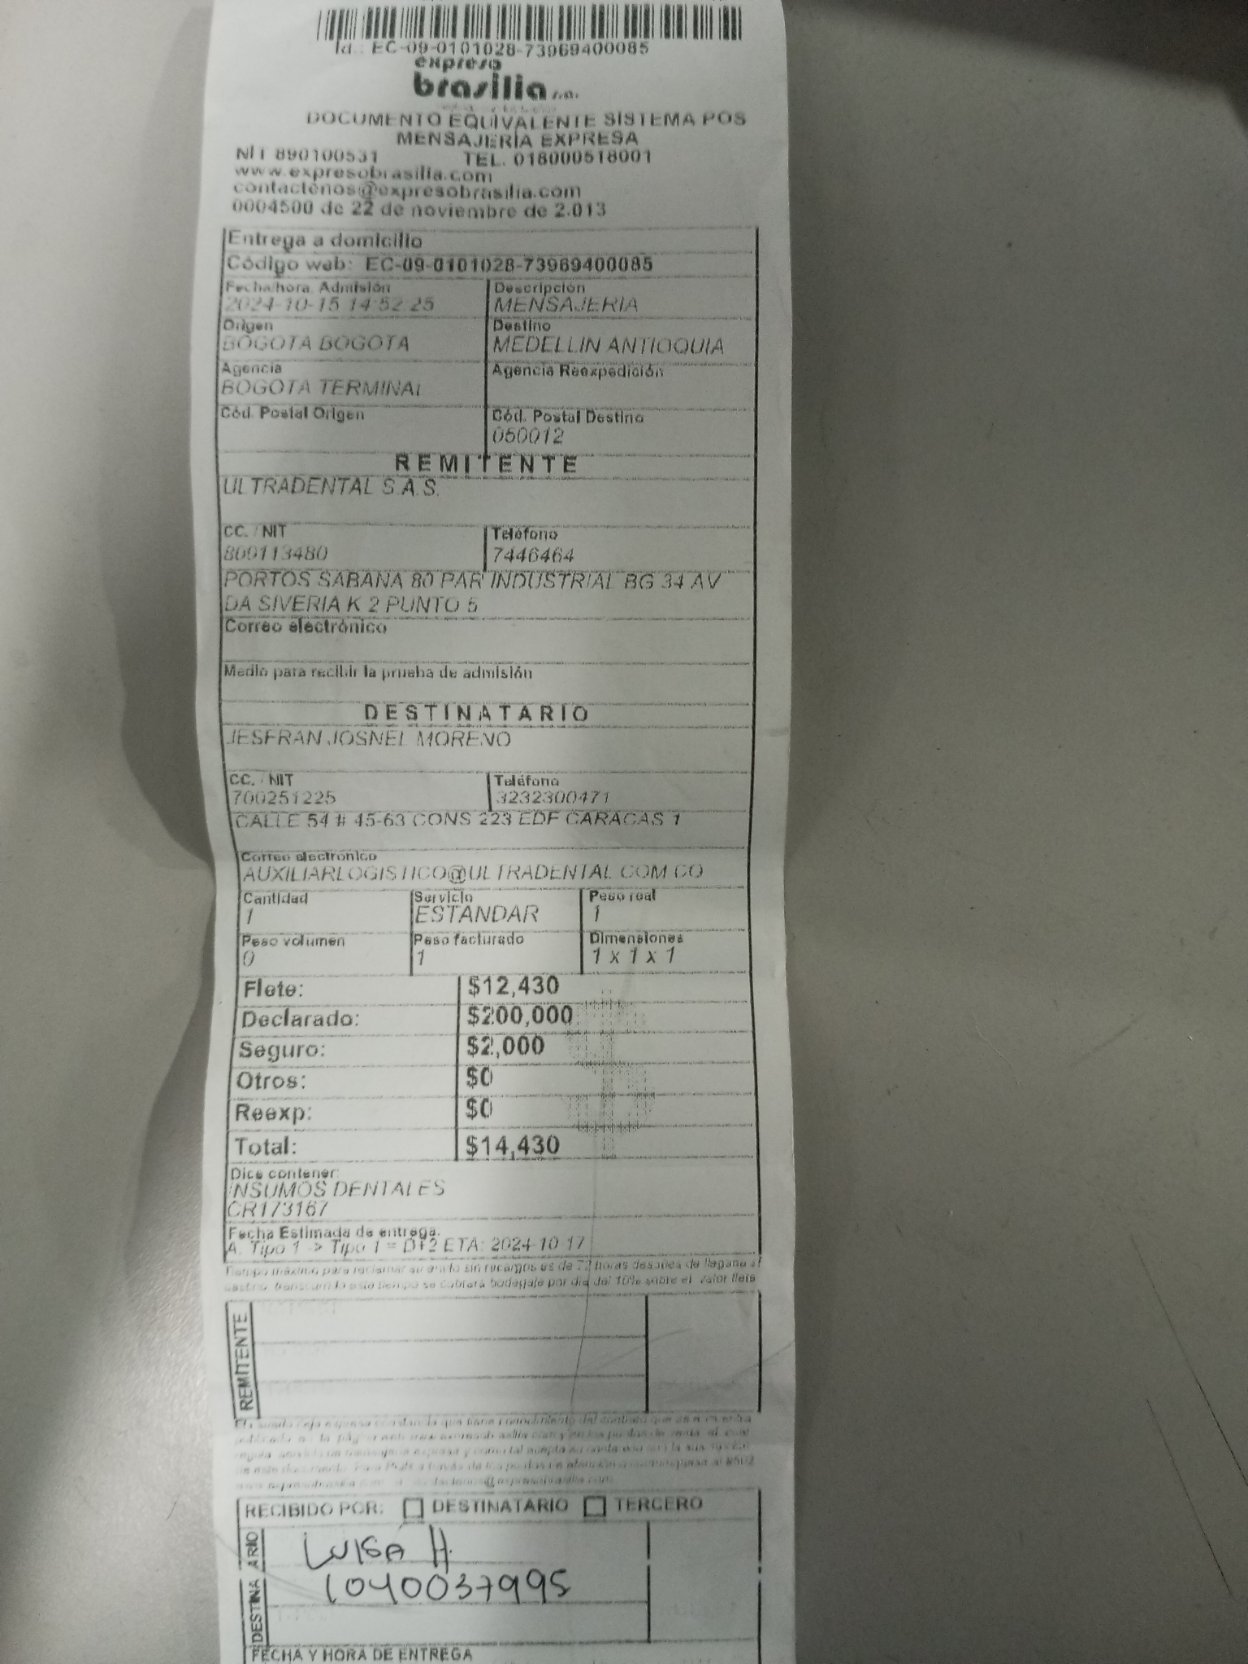 Id.: EC-09-0101028-73969400085
expreso
brasilia s.a.
DOCUMENTO EQUIVALENTE SISTEMA POS
MENSAJERÍA EXPRESA
NIT 890100531 TEL. 018000518001
www.expresobrasilia.com
contactenos@expresobrasilia.com
0004500 de 22 de noviembre de 2.013
Entrega a domicilio
Código web: EC-09-0101028-73969400085
Fecha/hora Admisión Descripción
2024-10-15 14:52:25 MENSAJERIA
Origen Destino
BOGOTA BOGOTA MEDELLIN ANTIOQUIA
Agencia Agencia Reexpedición
BOGOTA TERMINAL
Cód. Postal Origen Cód. Postal Destino
050012
REMITENTE
ULTRADENTAL S.A.S.
CC. / NIT Teléfono
809113480 7446464
PORTOS SABANA 80 PAR INDUSTRIAL BG 34 AV
DA SIVERIA K 2 PUNTO 5
Correo electrónico
Medio para recibir la prueba de admisión
DESTINATARIO
JESFRAN JOSNEL MORENO
CC. / NIT Teléfono
700251225 3232300471
CALLE 54 # 45-63 CONS 223 EDF CARACAS 1
Correo electronico
AUXILIARLOGISTICO@ULTRADENTAL.COM.CO
Cantidad Servicio Peso real
1 ESTANDAR 1
Peso volumen Peso facturado Dimensiones
0 1 1 x 1 x 1
Flete: $12,430
Declarado: $200,000
Seguro: $2,000
Otros: $0
Reexp: $0
Total: $14,430
Dice contener:
INSUMOS DENTALES
CR173167
Fecha Estimada de entrega:
A. Tipo 1 -> Tipo 1 = D+2 ETA: 2024-10-17
máximo para reclamar su envío sin recargos es de 72 horas después de llegana al
este tiempo se cobrará bodegaje por día del 10% sobre el valor flete
REMITENTE
RECIBIDO POR: DESTINATARIO TERCERO
DESTINATARIO
LUISA H.
1040037995
FECHA Y HORA DE ENTREGA